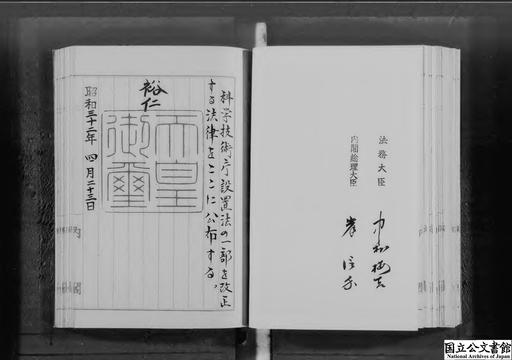 科学技術庁設置法の一部を改正
する法律をここに公布する。
裕仁
天皇
御璽
昭和三十二年 四月二十三日
法務大臣 中村梅吉
内閣総理大臣 岸信介
国立公文書館
National Archives of Japan